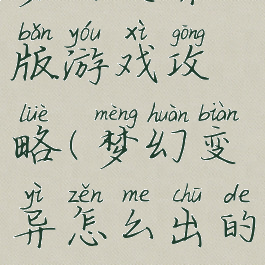 bǎn yóu xì gōng
版游戏攻
lüè mèng huàn biàn
略(梦幻变
yì zěn me chū de
异怎么出的